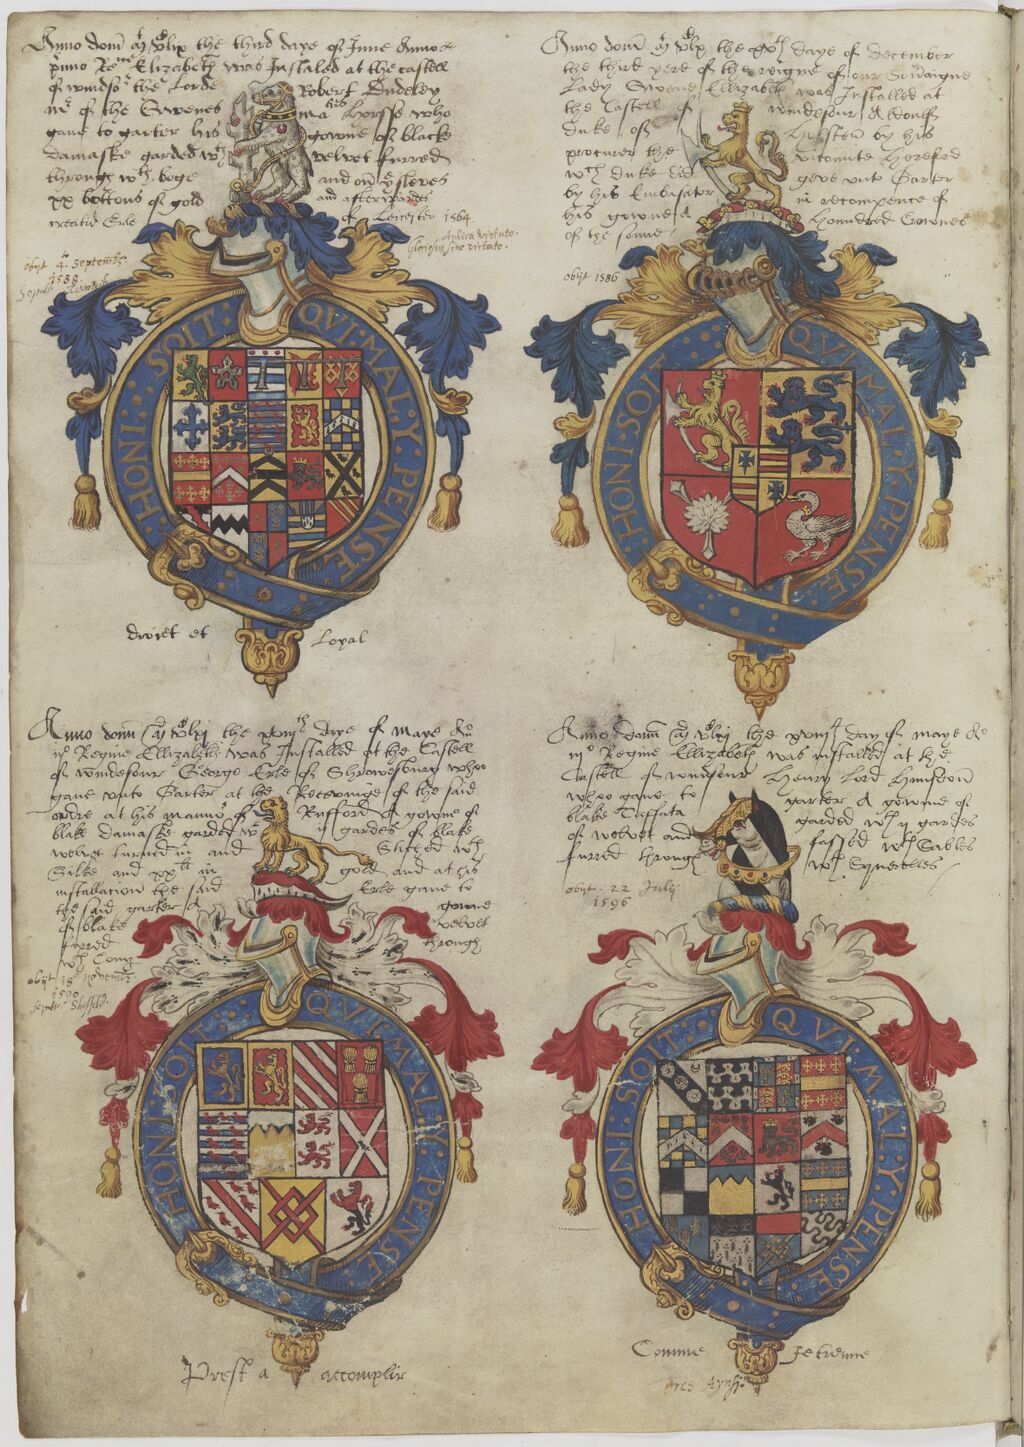 Anno dom̃ m vᶜ lix the third daye of June Anno
primo Re Elizabeth was Instaled at the castell
of windsor the Lorde Robert Dudeley
mr of the Quenes ma hes Horsse who
gaue to garter his gowne of blacke
damaske garded wᵗʰ veluet furred
throughe wᵗʰ boge and on yᵉ sleves
xx bottons of gold and afterwardes
created Erle of Leicester 1564.
obijt 4. Septemb.
1588
HONI · SOIT · QVI · MAL · Y · PENSE
droict et Loyal
Anno dom̃ the daye of December
the third yere of the reigne of our Soūaigne
Lady Quene Ellizabeth was Installed at
the Castell of windesour Adolf
Duke of Holsten by his
procurer the vicomte Hereford
wᶜʰ duke did geve unto Garter
by his Embasator in recompence of
his gowne A Hondred Corones
of the sonne
obijt 1586
HONI · SOIT · QVI · MAL · Y · PENSE
Anno dom̃ the daye of Maye
iijº Regine Ellizabeth was Installed at the Castell
of windesour George Erle of Shrowesbury whoo
gaue vnto Garter at the of the said
ordre at his mannor of Rufford A gowne of
blake damaske garded wᵗʰ ij gardes of blake
veluet turned in and Stiched wᵗʰ
Silke and xx in gold and at his
installacion the said Erle gaue to
the said garter A gowne
of blake veluet
furred through
wᵗʰ Cony
obijt 18 Novemb.
1590
HONI · SOIT QVI · MAL · Y · PENSE
Prest a accomplir
Anno dom̃ the day of maye
iijº Regine Ellizabeth was installed at the
Castell of windsour Henry Lord Hunsdon
whoo gaue to garter A gowne of
blake Taffata garded wᵗʰ ij gardes
of veluet and fassed wᵗʰ Sables
furred through wᵗʰ Squerelles
obijt 22 July
1596
HONI · SOIT · QVI · MAL · Y · PENSE
Comme je trenne